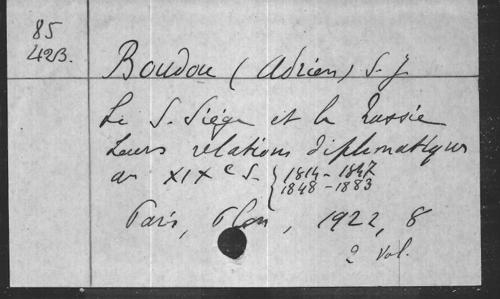 85
42B.
Boudou (Adrien) S. J
Le S. Siége et la Russie
Leurs relations diplomatiques
au XIXe S. { 1814 - 1847
1848 - 1883
Paris, Plon, 1922, 8
2 Vol.